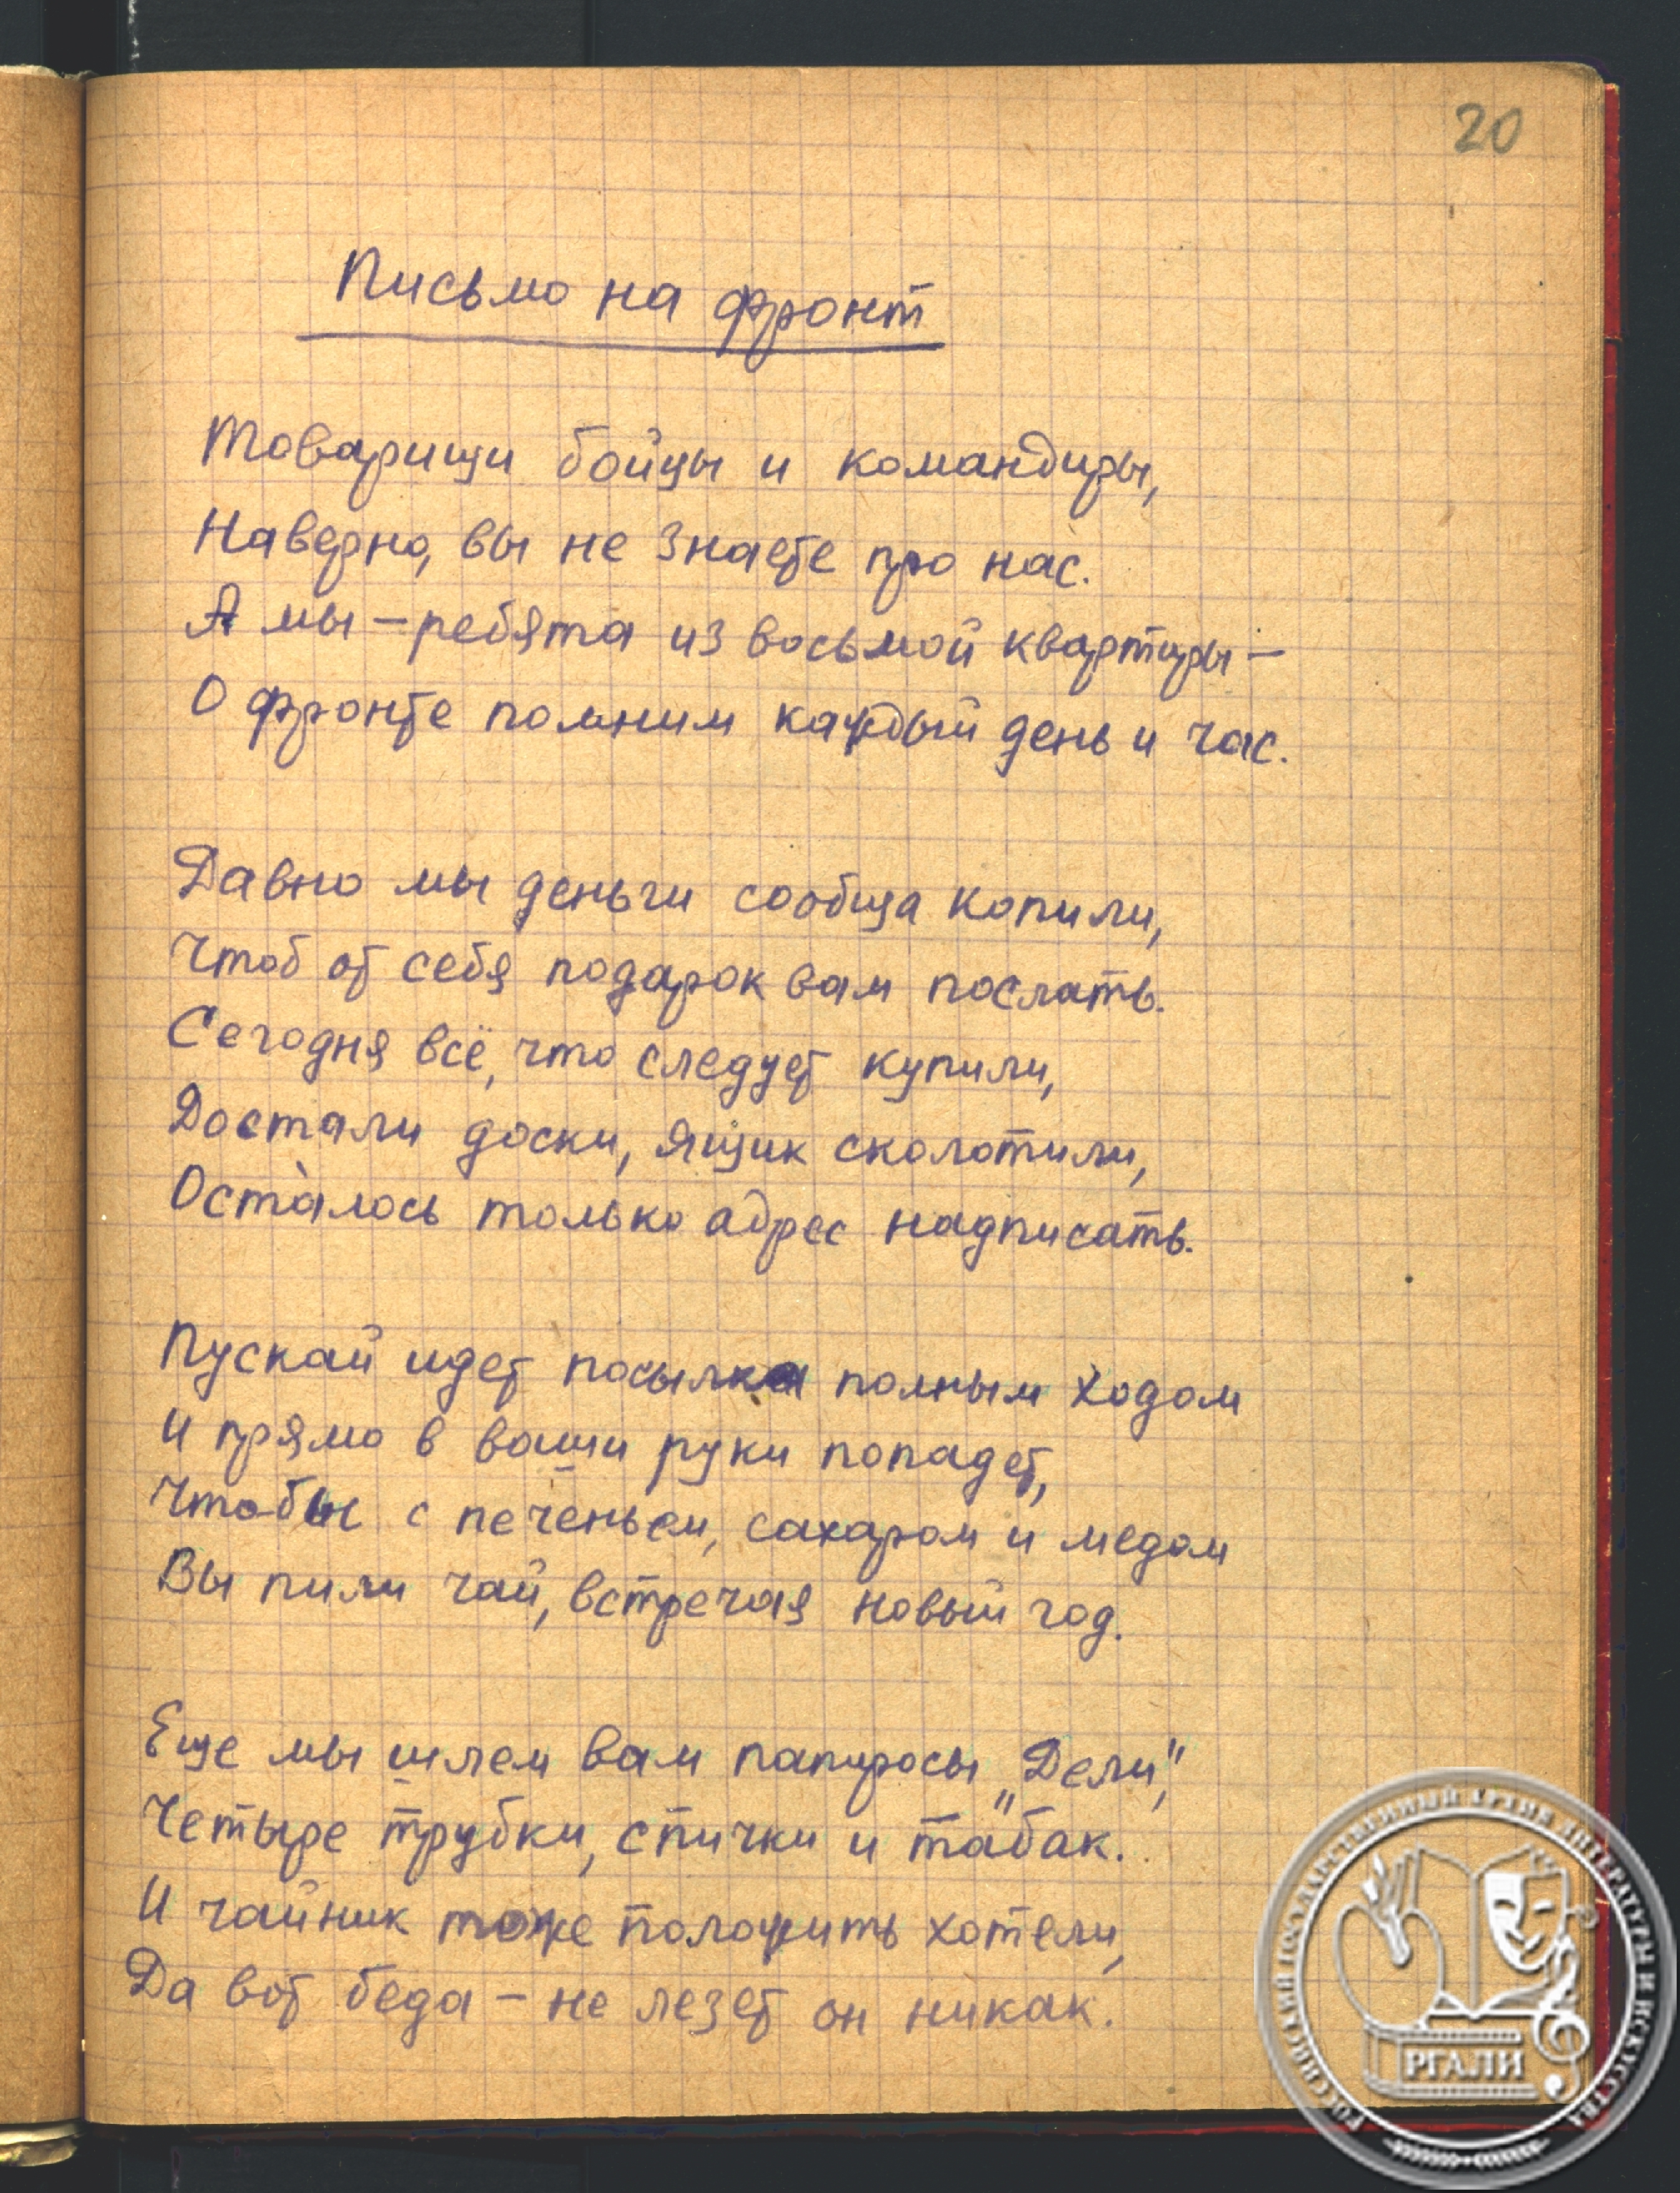 20
Письмо на фронт
Товарищи бойцы и командиры,
Наверно, вы не знаете про нас.
А мы – ребята из восьмой квартиры –
О фронте помним каждый день и час.
Давно мы деньги сообща копили,
Чтоб от себя подарок вам послать.
Сегодня всё, что следует купили,
Достали доски, ящик сколотили,
Осталось только адрес надписать.
Пускай идет посылка полным ходом
И прямо в ваши руки попадет,
Чтобы с печеньем, сахаром и медом
Вы пили чай, встречая новый год.
Еще мы шлем вам папиросы „Дели",
Четыре трубки, спички и табак.
И чайник тоже положить хотели,
Да вот беда – не лезет он никак.
РОССИЙСКИЙ ГОСУДАРСТВЕННЫЙ АРХИВ ЛИТЕРАТУРЫ И ИСКУССТВА
РГАЛИ